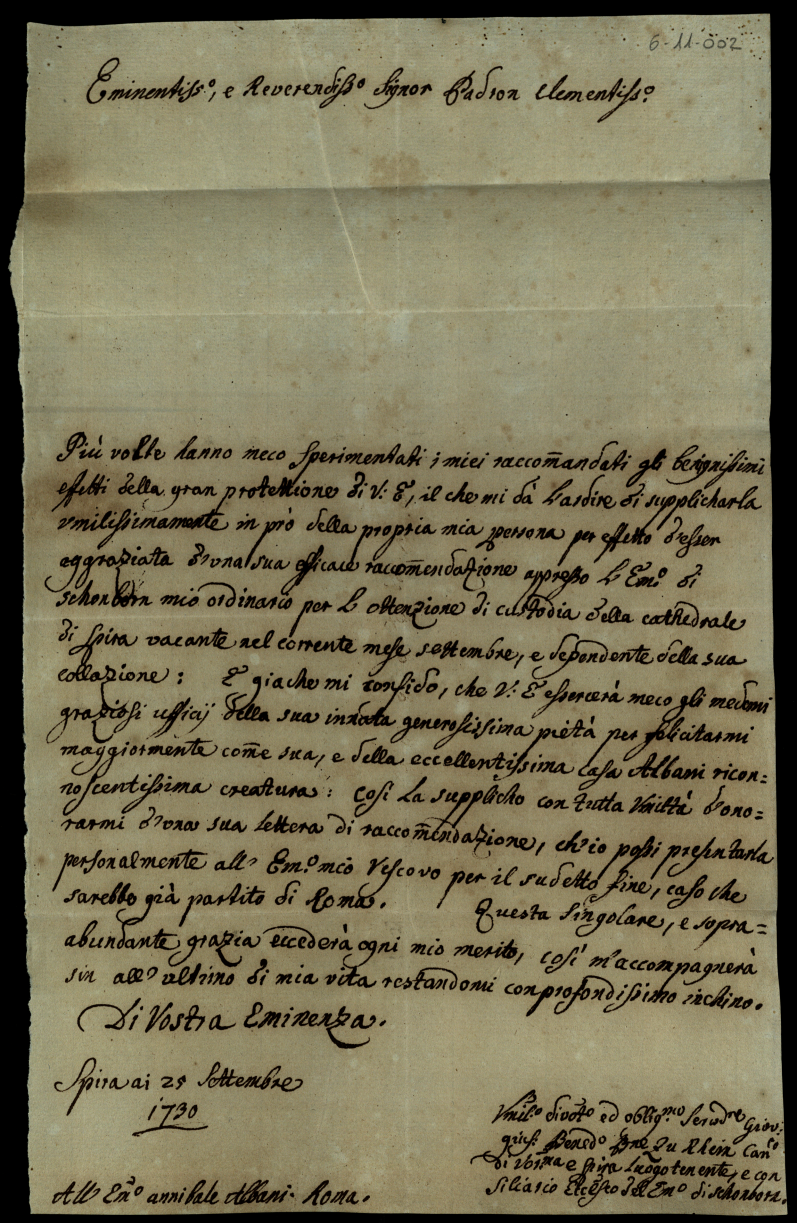 6-11-002
Eminentiss.º, e Reverendiss.º Signor Padron Clementiss.º
Più volte hanno meco sperimentati i miei raccom̃andati gli benignissimi
effetti della gran protettione di V: E, il che mi dà l'ardire di supplicharla
vmilissimamente in prò della propria mia persona per effetto d'esser
aggraziata d'vna sua efficace raccom̃endazione appresso l'Em.º di
Schonborn mio ordinario per l'ottenzione di custodia della cathedrale
di Spira vacante nel corrente mese settembre, e dependente della sua
collazione: E giache mi confido, che V: E essercerà meco gli medemi
graziosi ufficij della sua innata generosissima pietà per felicitarmi
maggiormente com̃e sua, e della eccellentissima casa Albani ricon=
noscentissima creatura: Così la supplicho con tutta Vmiltà d'ono=
rarmi d'vna sua lettera di raccom̃endazione, ch'io possi presentarla
personalmente all' Em.º mio Vescovo per il sudetto fine, caso che
sarebbe già partito di Roma. Questa singolare, e sopra=
abundante grazia eccederà ogni mio merito, così m'accompagnerà
sin all' ultimo di mia vita restandomi con profondissimo inchino.
Di Vostra Eminenza.
Spira ai 25 Settembre
1730
Vmil.º divot.º ed obblig.mo Servid.re Giov:
Bened.º Zu Rhein Can.co
di e Spira Luogotenente, e con
siliario di Schonborn.
All' Em.º annibale Albani. Roma.